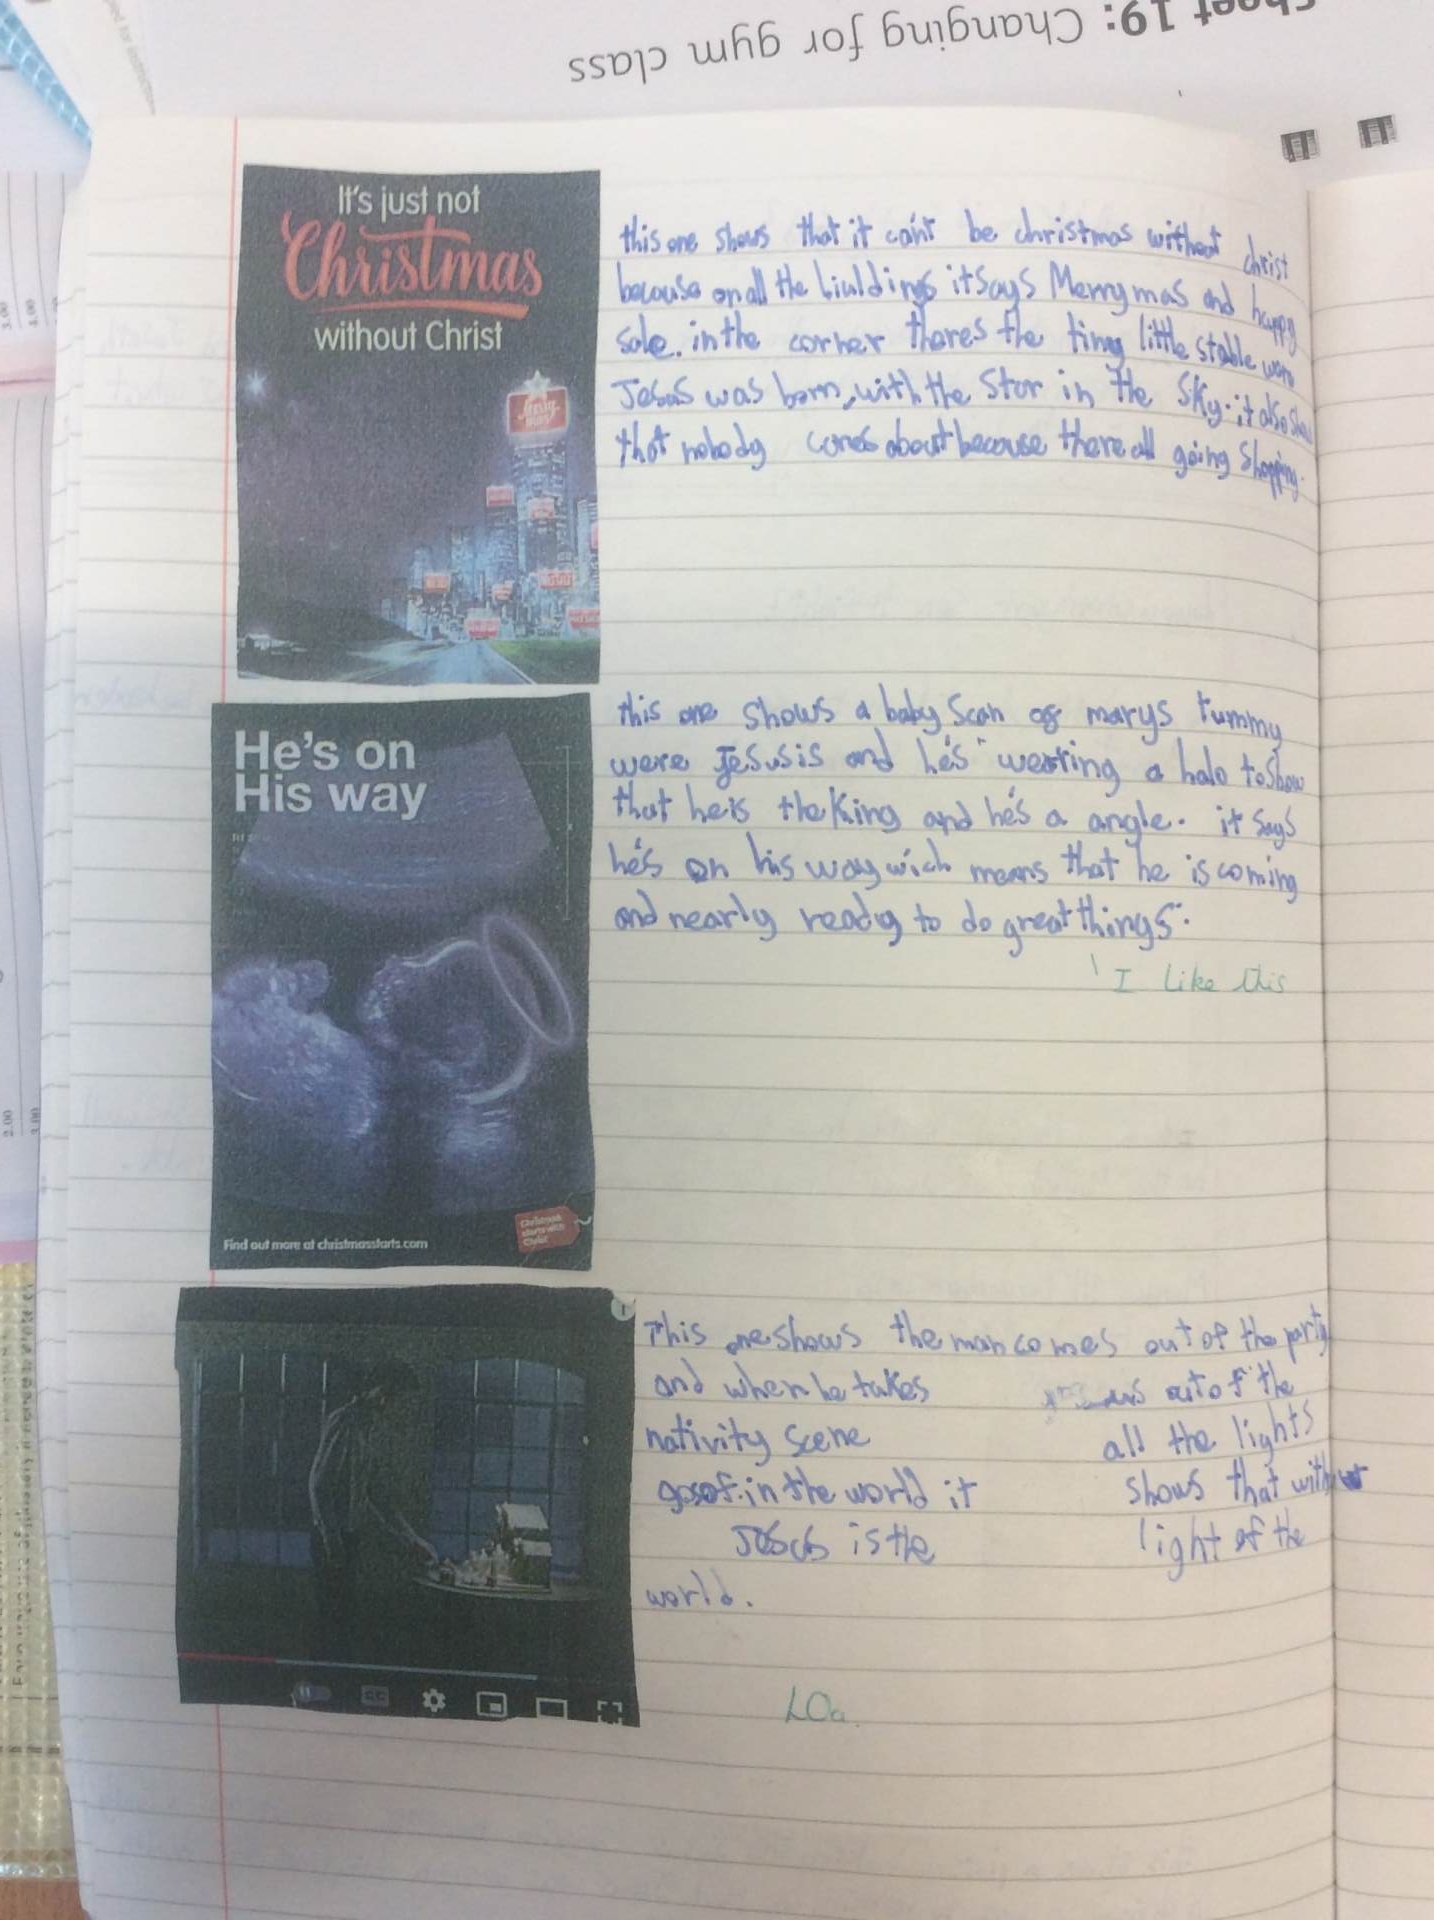 Sheet 19: Changing for gym class
It's just not
Christmas
without Christ
this one shows that it can't be christmas without christ
because on all the biuldings it says Merry mas and happy
sale. in the corner theres the tiny little stable were
Jesus was born, with the star in the sky. it also shows
that nobody cares about because there all going shopping.
He's on
His way
Find out more at christmasstarts.com
Christmas
starts with
Christ
this one shows a baby scan of marys tummy
were Jesus is and he's wearing a halo to show
that he is the King and he's a angle. it says
he's on his way wich means that he is coming
and nearly ready to do great things.
I like this
This one shows the man comes out of the party
and when he takes out of the
nativity scene all the lights
go of. in the world it shows that without
Jesus is the light of the
world.
CC
LOa.